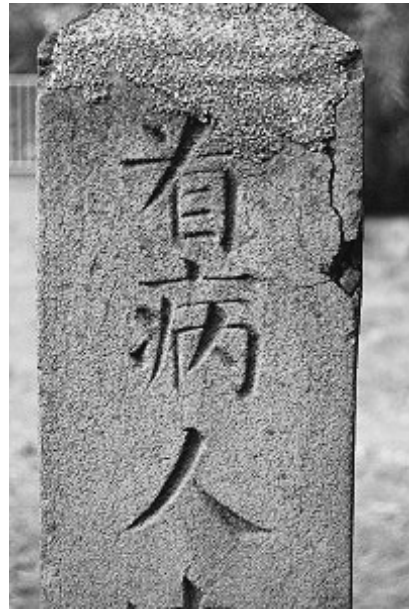 看病人